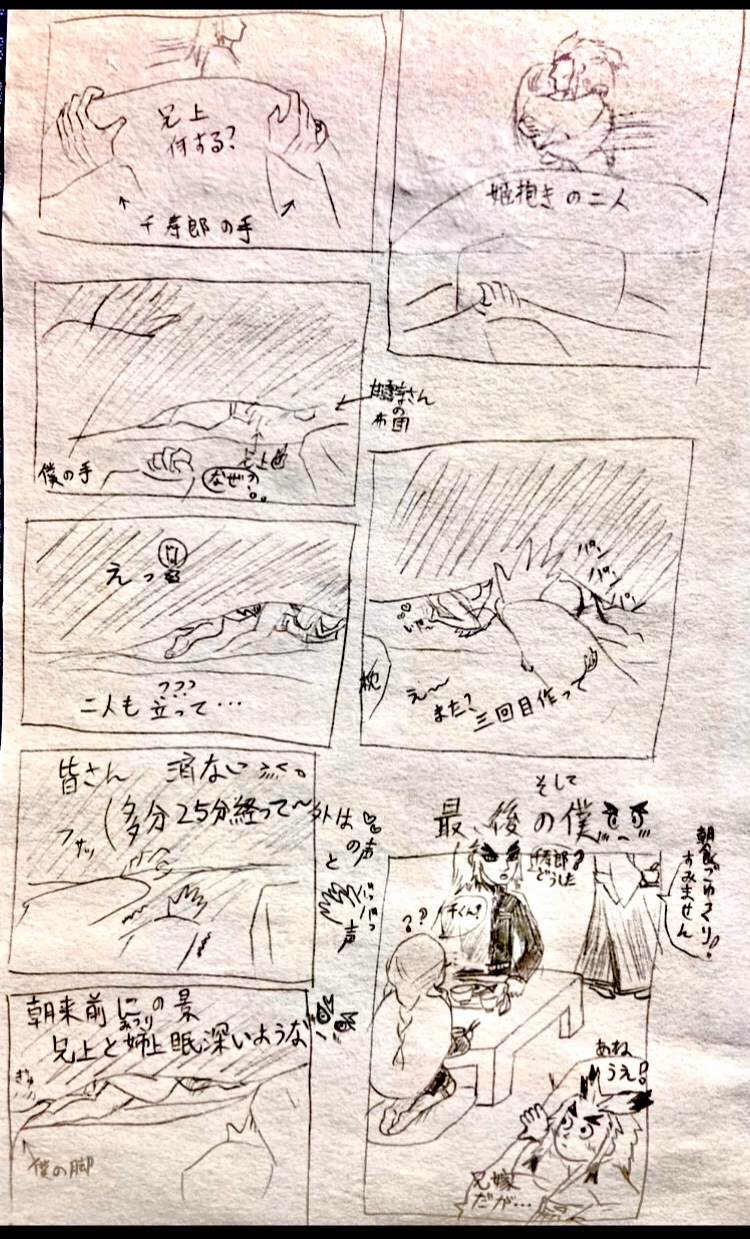 姫抱きの二人
兄上
何する?
千寿郎の手
さん
の
布団
僕の手
なぜ
パン
パン
パン
枕
え〜
また?
三回目作って
えっ
???
二人も立って…
皆さん 済ない
(多分25分経って〜外は
の声
と
声
フサッ
朝来前にの景
兄上と姉上眠深いような
僕の脚
そして
最後の僕
どうした
千くん!
??
朝食ごゆっくり!
すみません
あね
うえ!
兄嫁
だが…